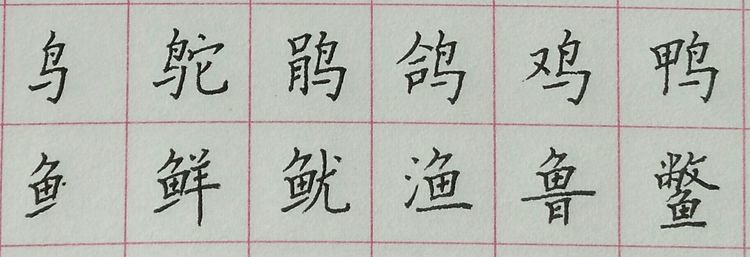 鸟 鸵 鹃 鸽 鸡 鸭
鱼 鲜 鱿 渔 鲁 鳖